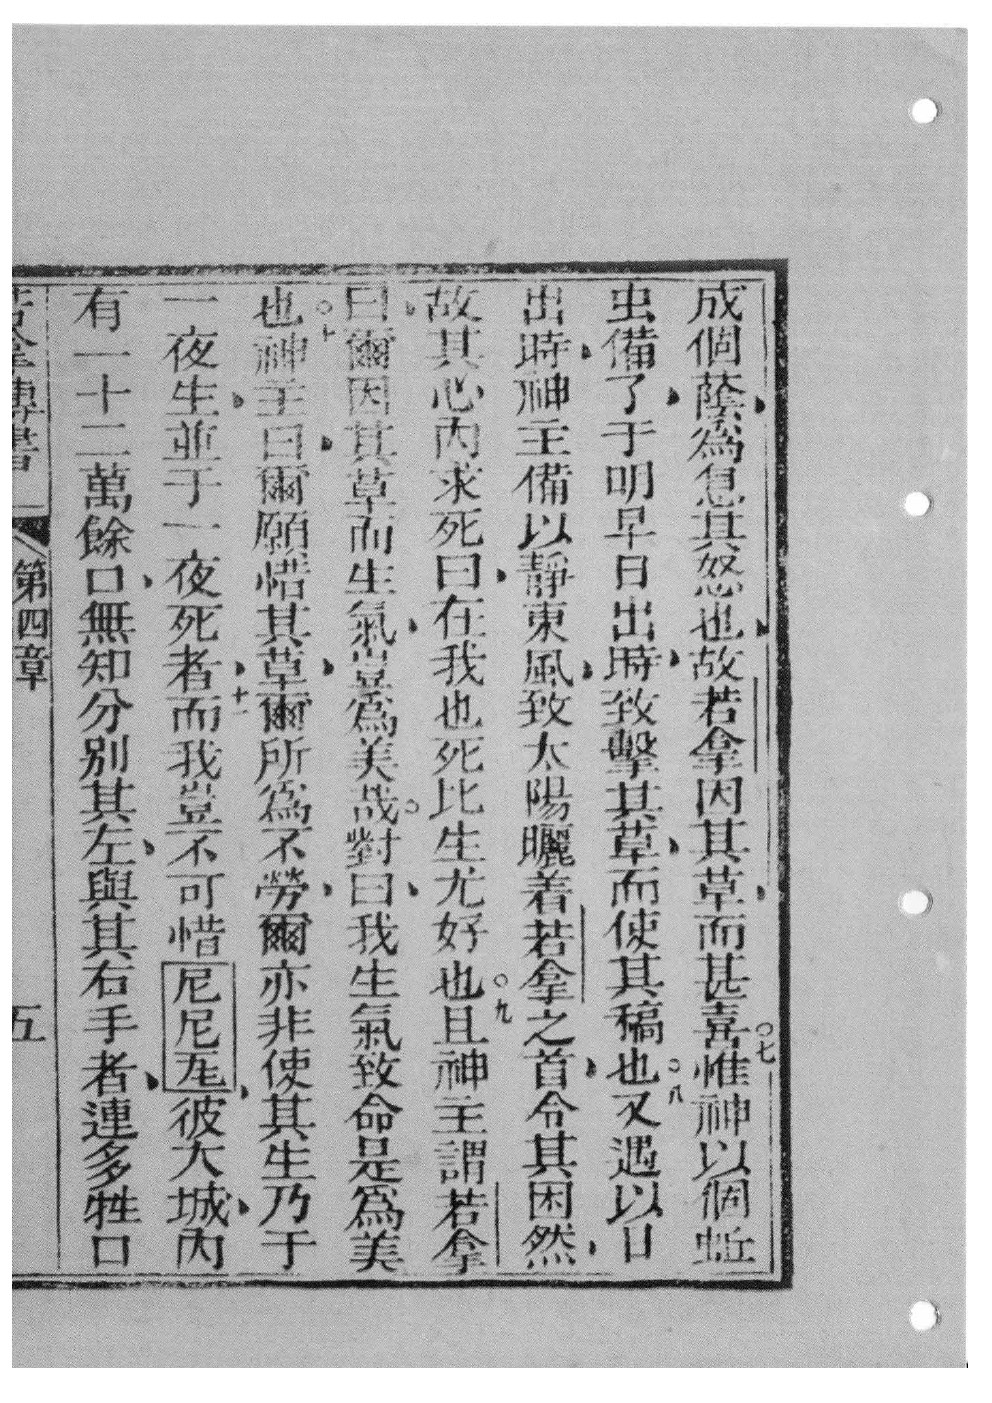 成個蔭、為息其怒也、故若拿因其草、而甚喜○七惟神以個蚯
虫備了、于明早日出時、致擊其草、而使其稿也○八又遇以日
出時、神主備以靜東風、致太陽曬着若拿之首、令其困然、
故其心內求死曰、在我也死比生尤好也○九且神主謂若拿
曰、爾因其草而生氣、豈爲美哉○對曰、我生氣致命是爲美
也○十神主曰、爾願惜其草、爾所爲不勞、爾亦非使其生乃于
一夜生、並于一夜死者、十一而我豈不可惜尼尼瓦、彼大城、內
有一十二萬餘口、無知分別其左、與其右手者、連多牲口
若拿傳書 第四章 五